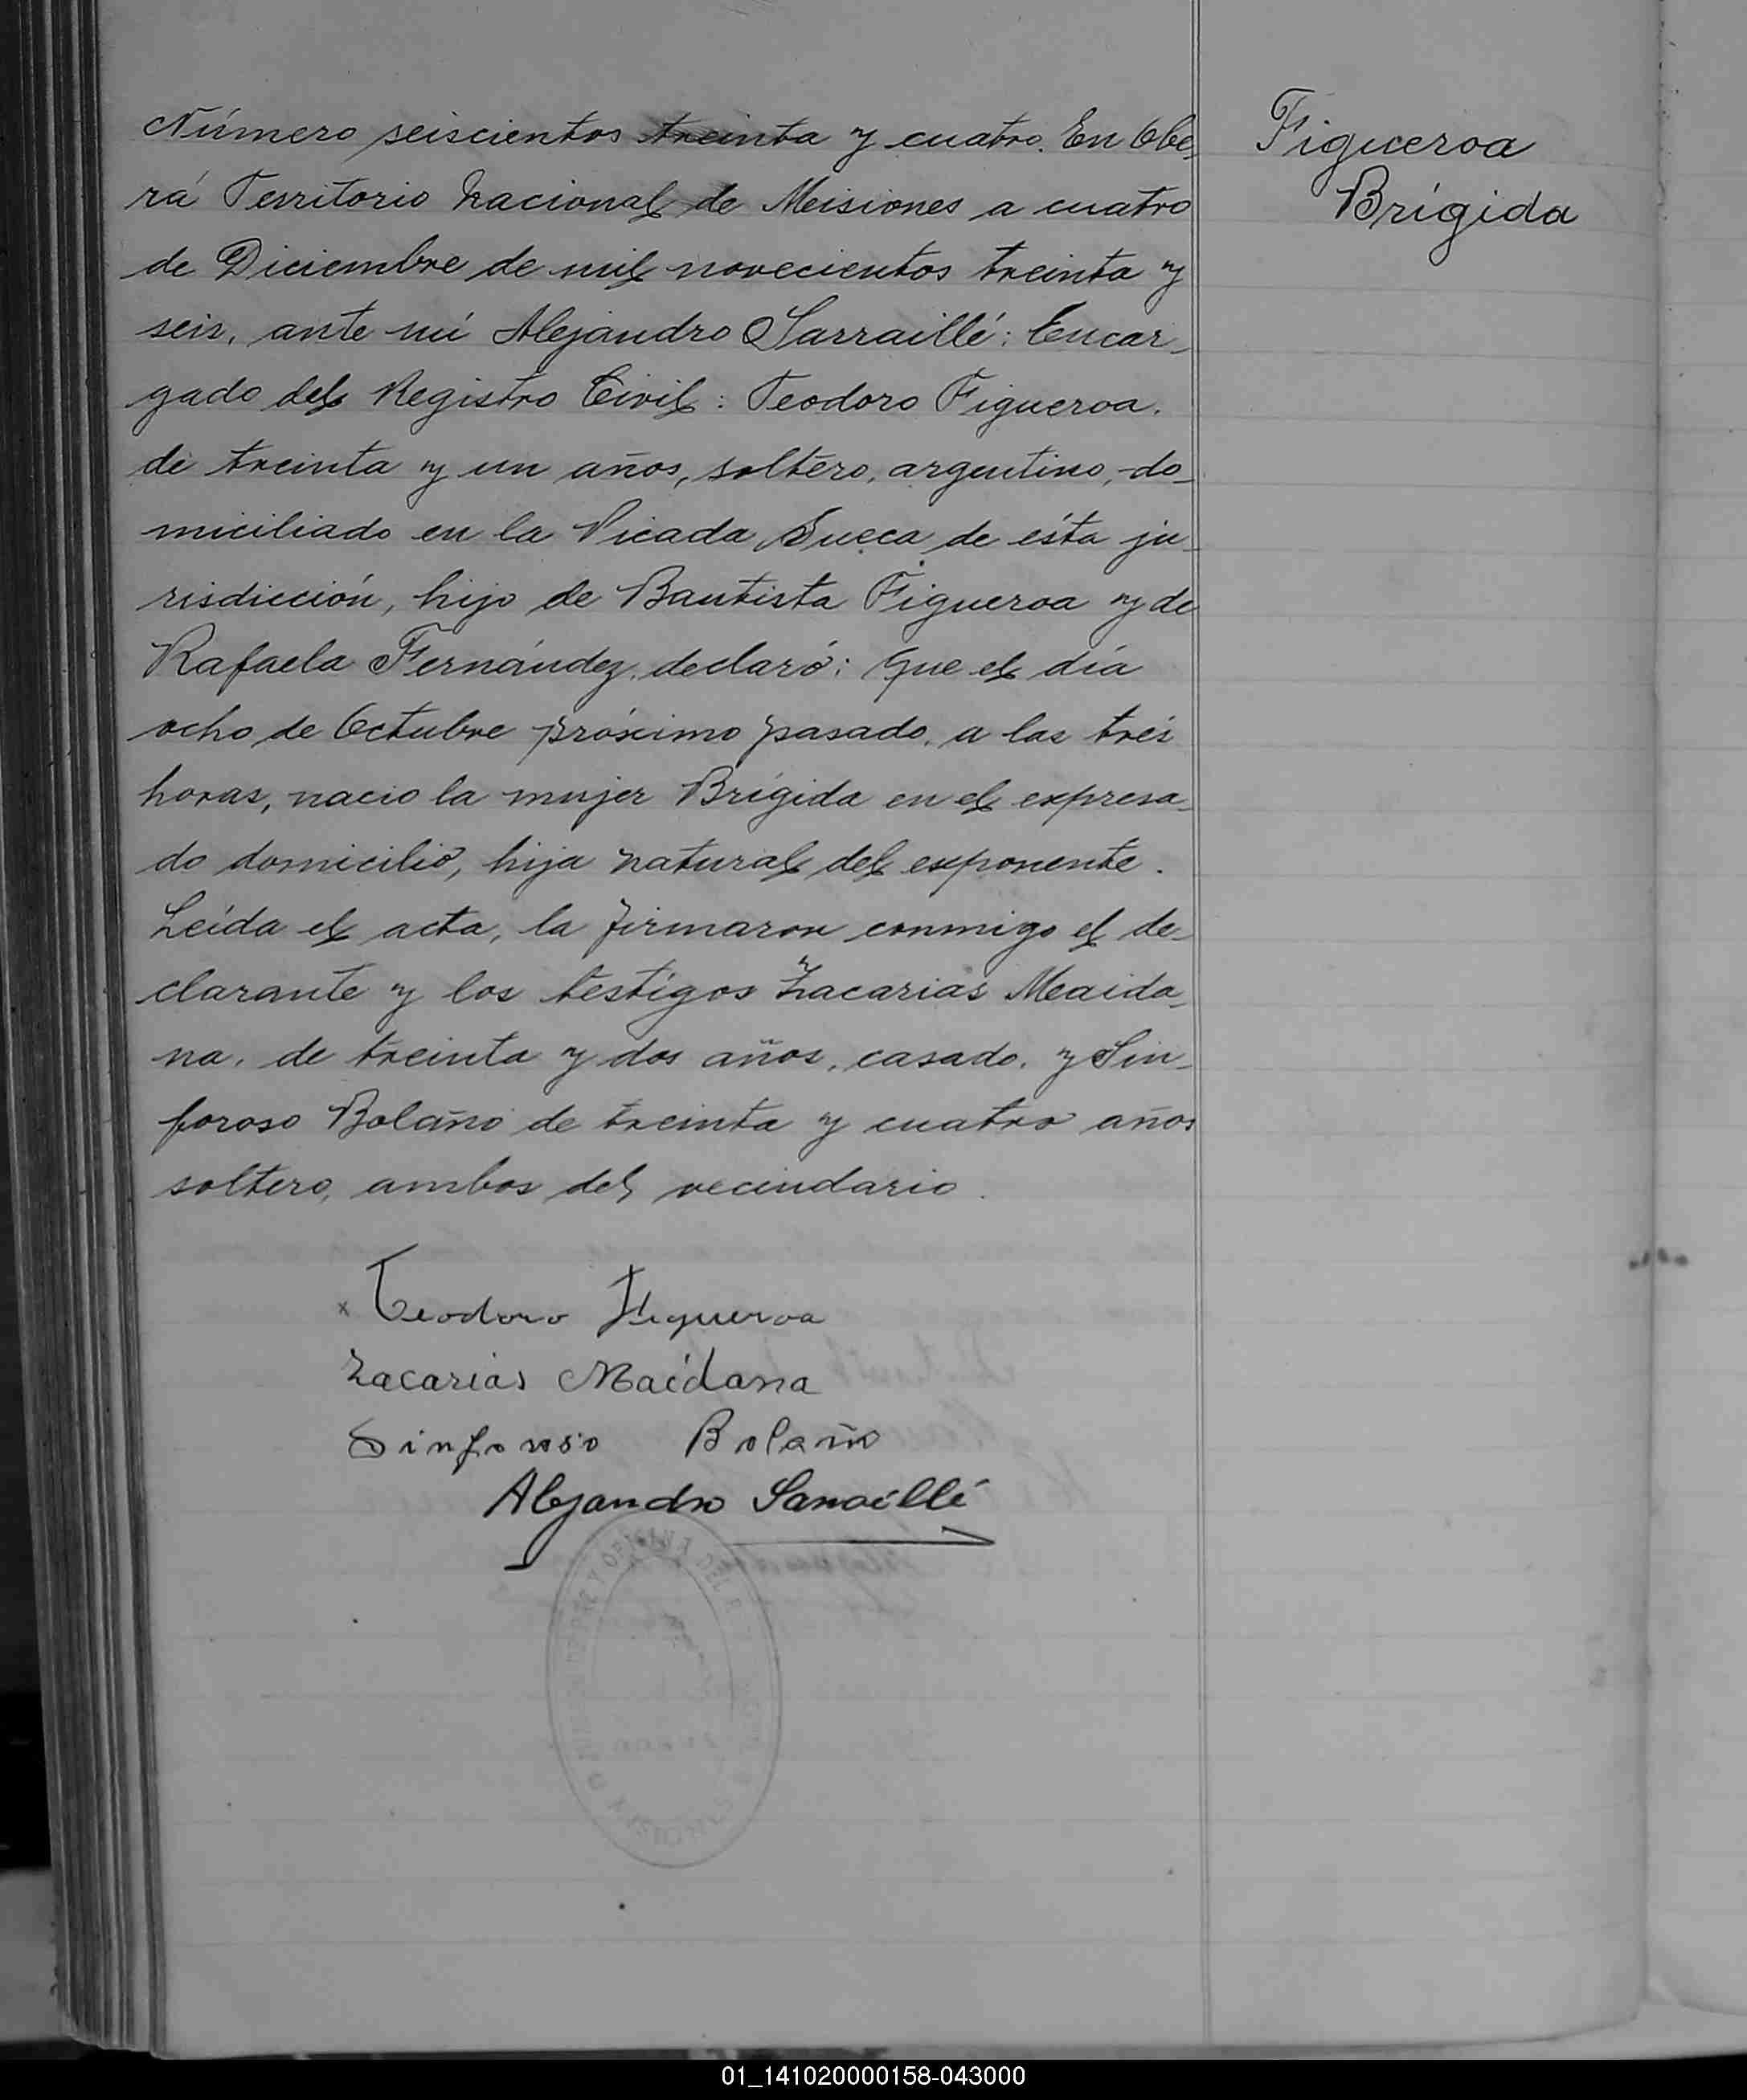 Número seiscientos treinta y cuatro. En Obe-
rá Territorio Nacional de Misiones a cuatro
de Diciembre de mil novecientos treinta y
seis, ante mí Alejandro Sarraillé: Encar-
gado del Registro Civil: Teodoro Figueroa.
de treinta y un años, soltero, argentino, do-
miciliado en la Picada Sueca de ésta ju-
risdicción, hijo de Bautista Figueroa y de
Rafaela Fernández, declaró: Que el día
ocho de Octubre próximo pasado, a las tres
horas, nacio la mujer Brígida en el expresa-
do domicilio, hija natural del exponente.
Leída el acta, la firmaron conmigo el de-
clarante y los testigos Zacarias Maida-
na, de treinta y dos años, casado, y Sin-
foroso Bolaño de treinta y cuatro años
soltero, ambos del vecindario.
Figueroa
Brígida
x Teodoro Figueroa
Zacarias Maidana
Sinforoso Bolaño
Alejandro Sarraillé
01_141020000158-043000